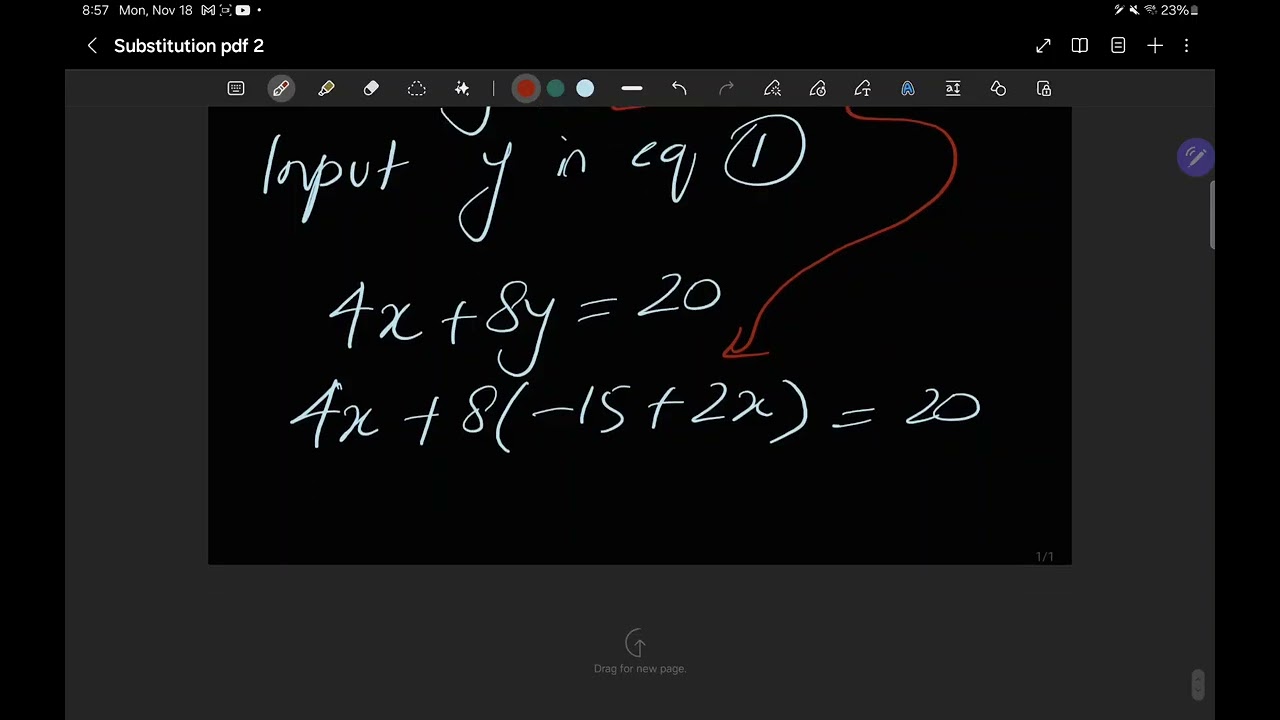 8:57 Mon, Nov 18 23%
Substitution pdf 2
Input y in eq ①
4x + 8y = 20
4x + 8(-15 + 2x) = 20
1/1
Drag for new page.